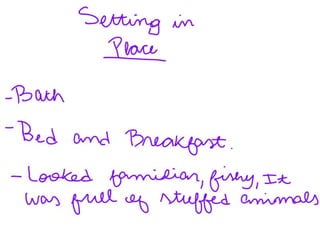 Setting in
Place
- Bath
- Bed and Breakfast.
- Looked familiar, firey, It
was full of stuffed animals